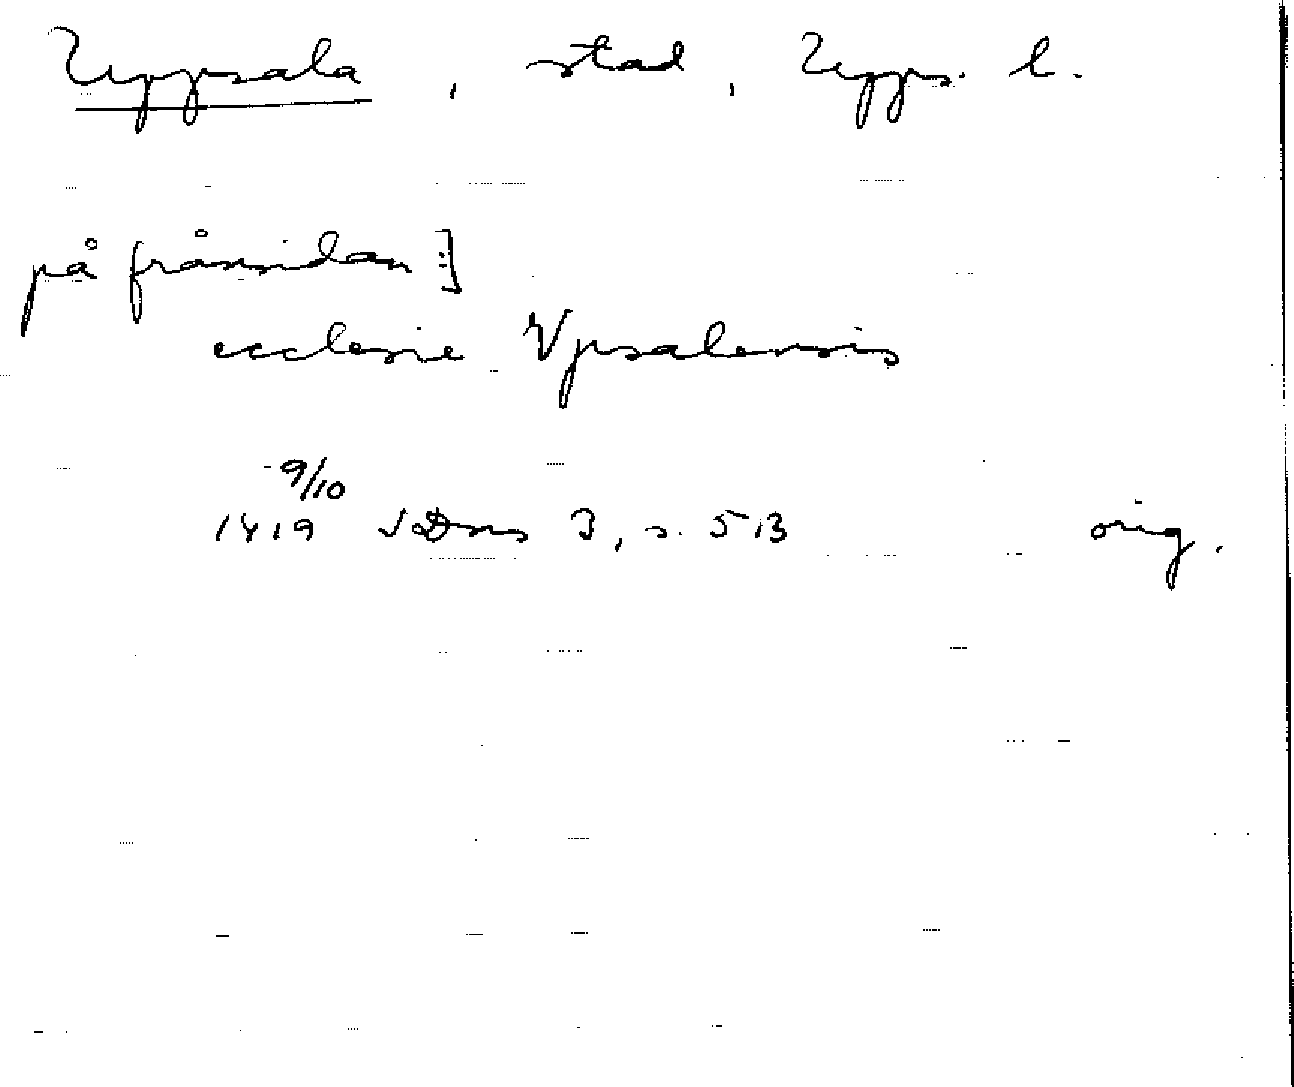 Uppsala, stad, Upps. l.
på frånsidan:]
ecclesie Vpsalensis
9/10
1419 SDns 3, s. 513 orig.